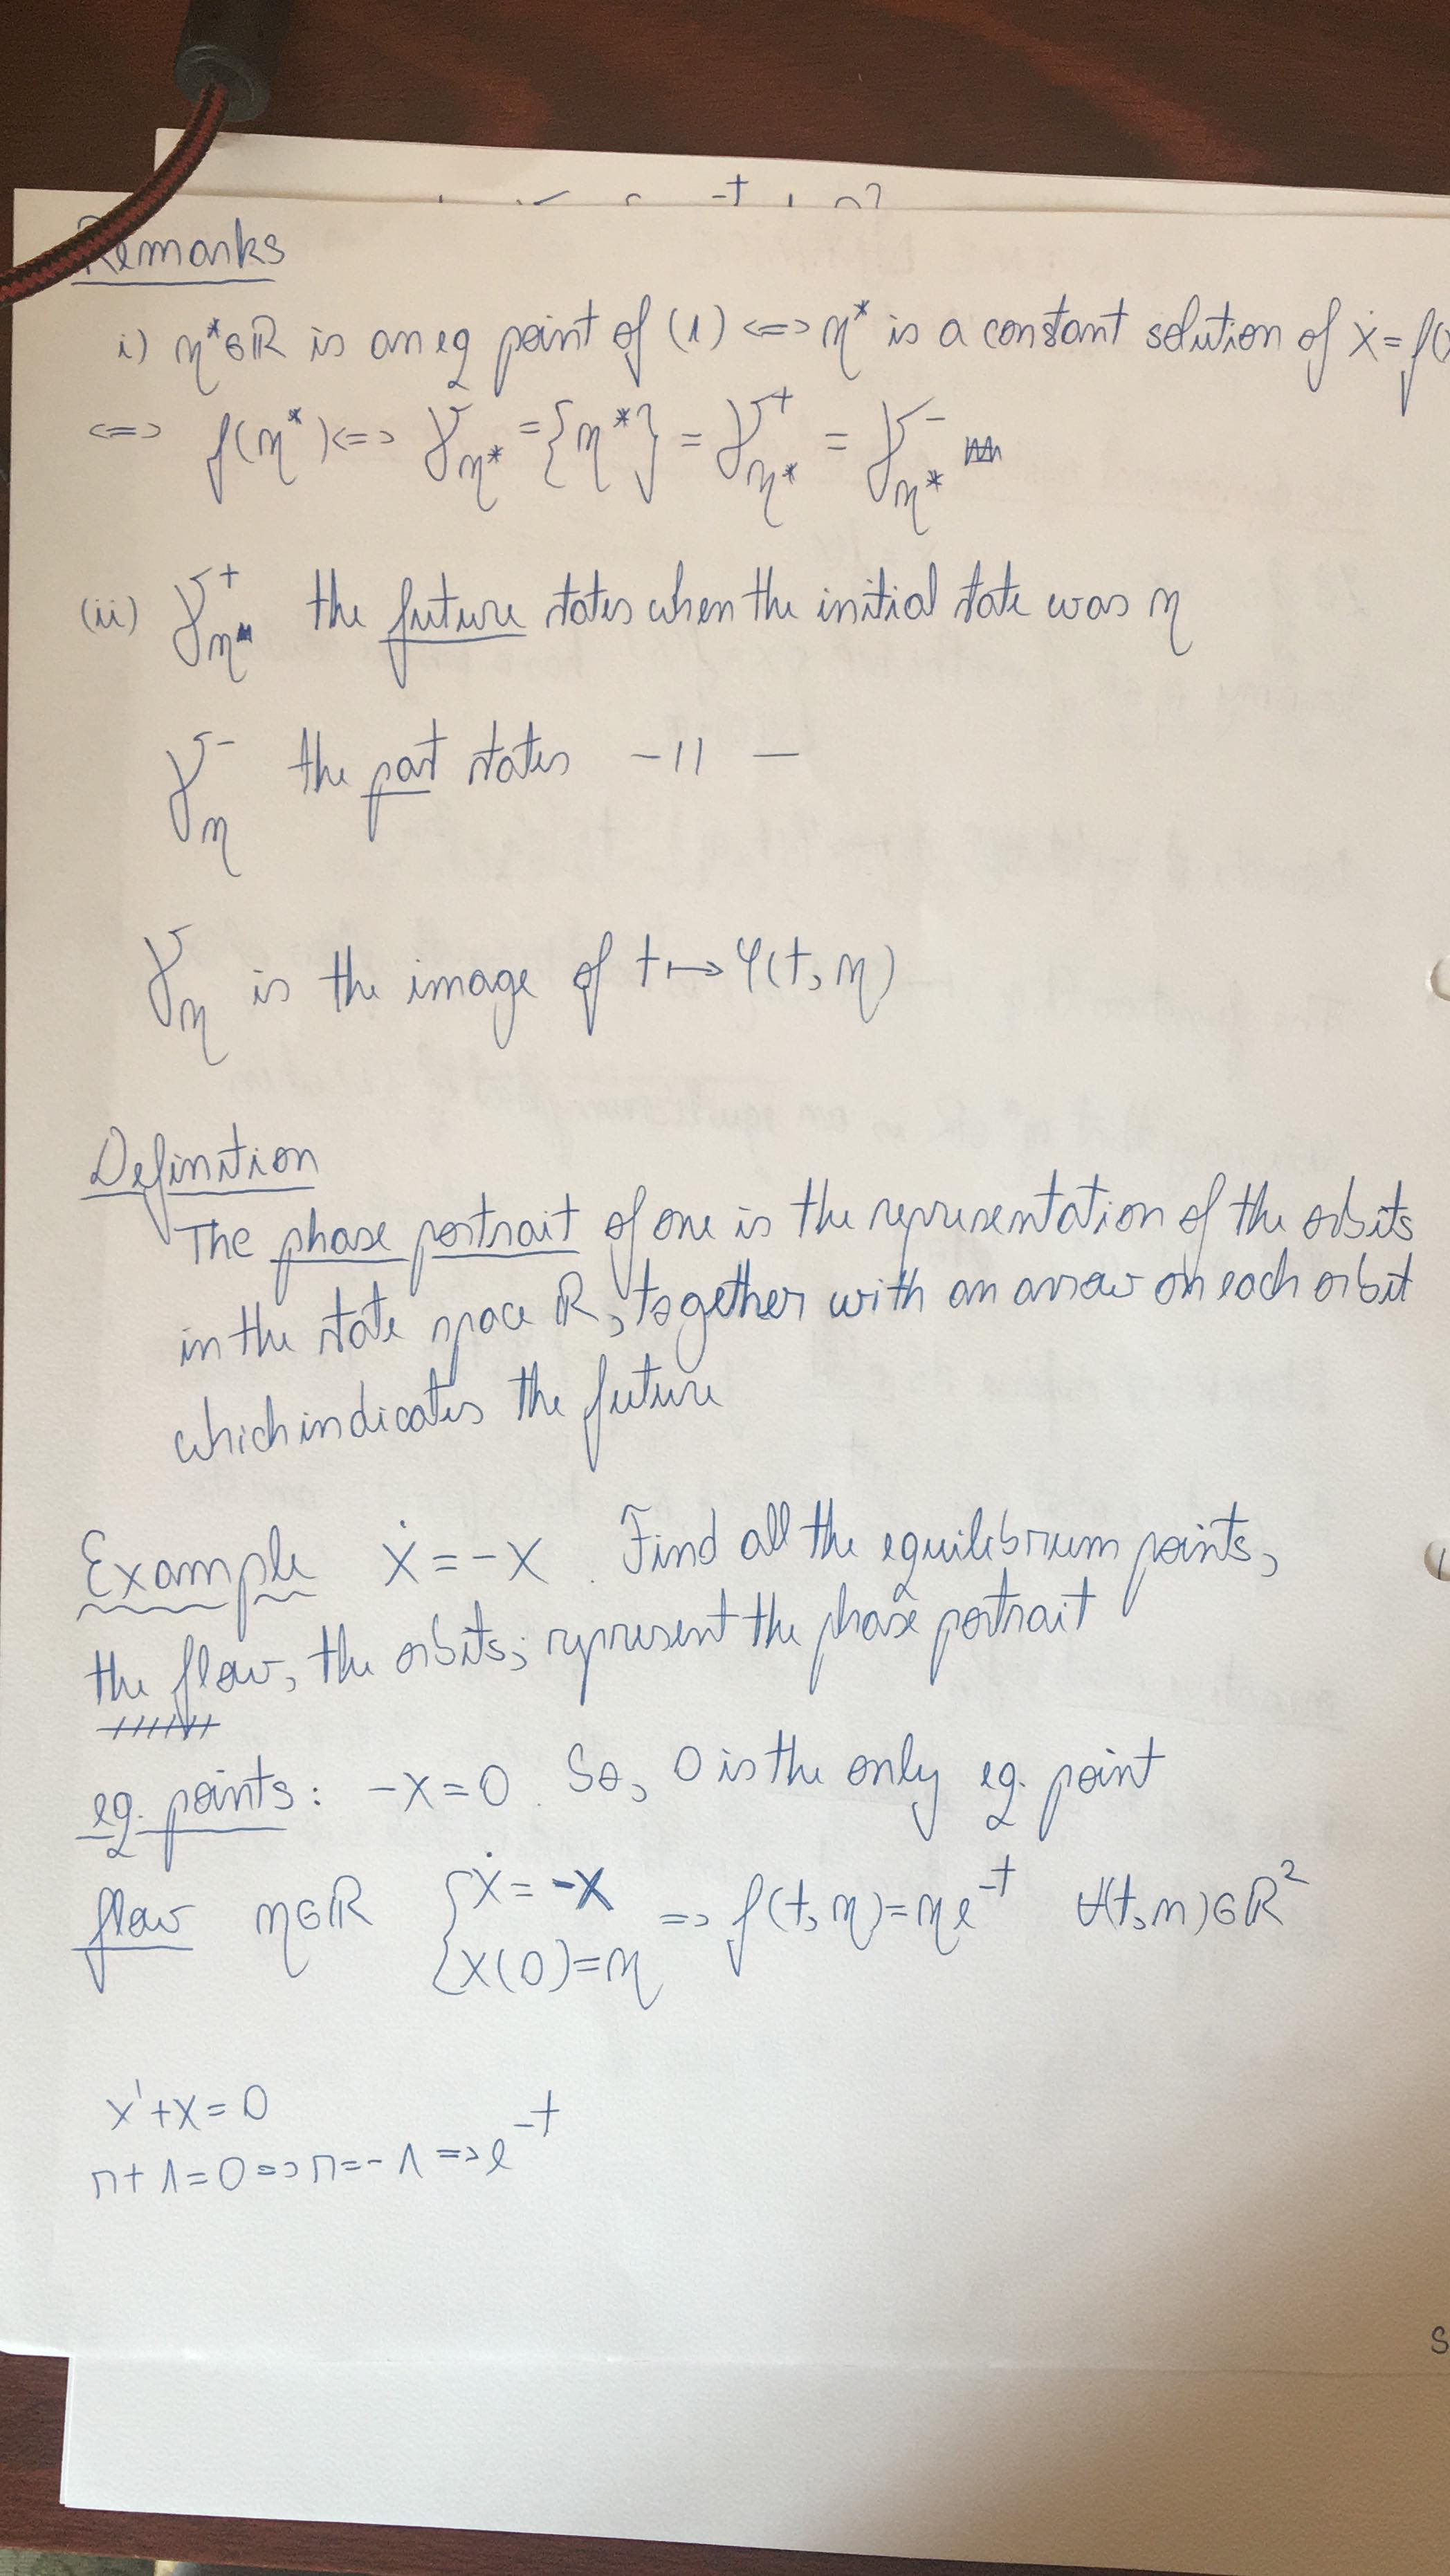 Remarks
i) η*∈ℝ is an eq point of (1) <=> η* is a constant solution of ẋ = f(
<=> f(η*) <=> γ_η* = {η*} = γ⁺_η* = γ⁻_η*
(ii) γ⁺_η the future states when the initial state was η
γ⁻_η the past states -||-
γ_η is the image of t ↦ φ(t, η)
Definition
The phase portrait of one is the representation of the orbits
in the state space ℝ, together with an arrow on each orbit
which indicates the future
Example ẋ = -x. Find all the equilibrium points,
the flow, the orbits; represent the phase portrait
eq. points: -x = 0. So, 0 is the only eq. point
flow η∈ℝ { ẋ = -x
{ x(0) = η => f(t, η) = ηe^-t ∀(t, η)∈ℝ²
x' + x = 0
r + 1 = 0 => r = -1 => e^-t